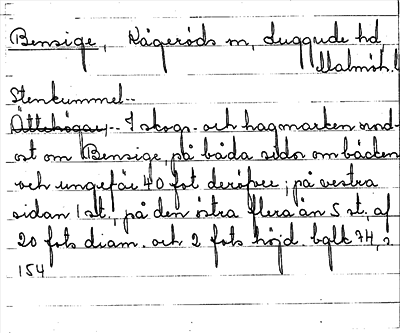 Bensige, Kågeröds m, Luggude hd,
Malmöh. l
Stenkummel..
Ättehögar,.. I skogs- och hagmarken nord-
ost om Bensige, på båda sidor om bäcken
och ungefär 40 fot deröfver; på vestra
sidan 1 st., på den östra flera än 5 st. af
20 fots diam. och 2 fots höjd. bqlt 74, s.
154